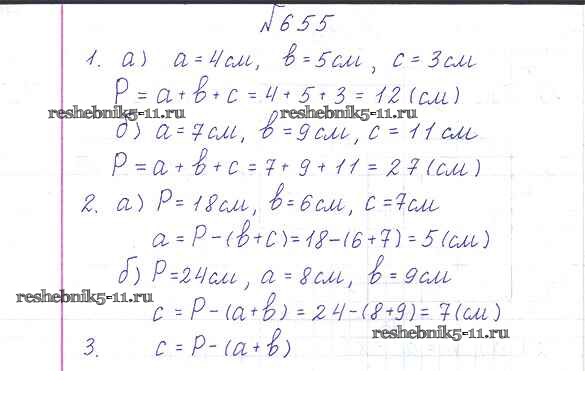 №655
1. а) a = 4 см, b = 5 см, c = 3 см
P = a + b + c = 4 + 5 + 3 = 12 (см)
reshebnik5-11.ru reshebnik5-11.ru
б) a = 7 см, b = 9 см, c = 11 см
P = a + b + c = 7 + 9 + 11 = 27 (см)
2. а) P = 18 см, b = 6 см, c = 7 см
a = P - (b + c) = 18 - (6 + 7) = 5 (см)
б) P = 24 см, a = 8 см, b = 9 см
reshebnik5-11.ru
c = P - (a + b) = 24 - (8 + 9) = 7 (см)
reshebnik5-11.ru
3. c = P - (a + b)